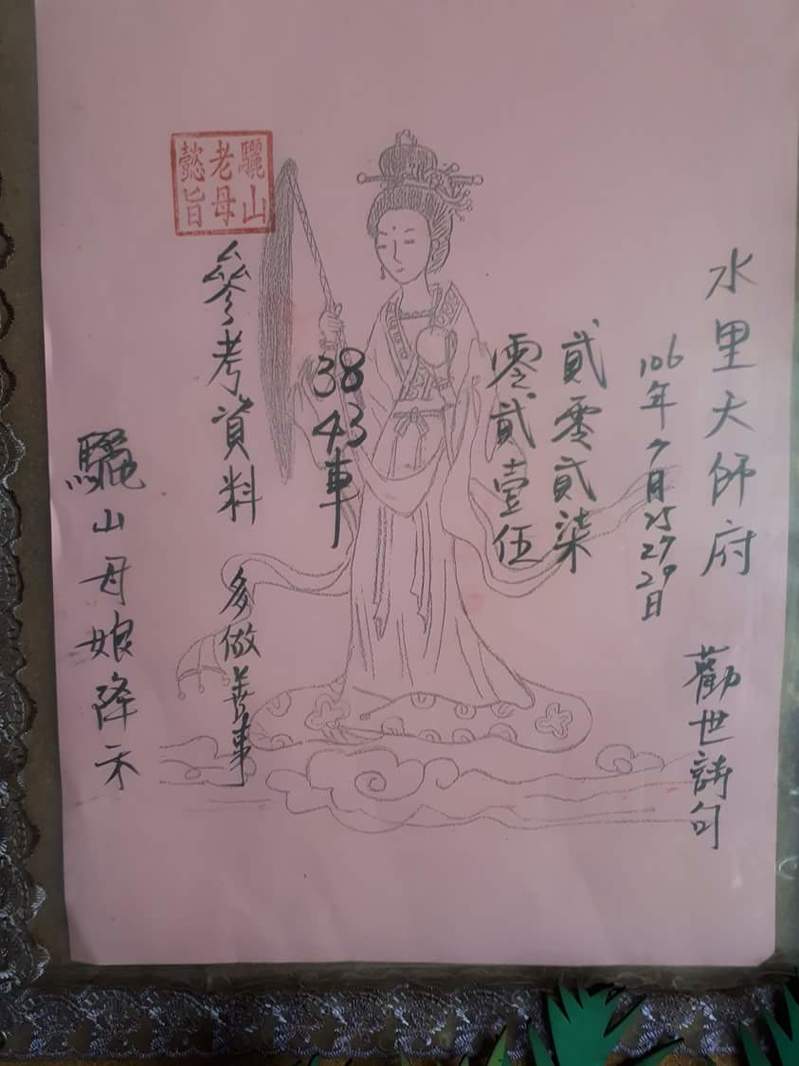 水里天師府 勸世詩句
106年7月25 27 29日
貳零貳柒
零貳壹伍
38
43車
參考資料 多做善事
驪山母娘降示
驪山
老母
懿旨